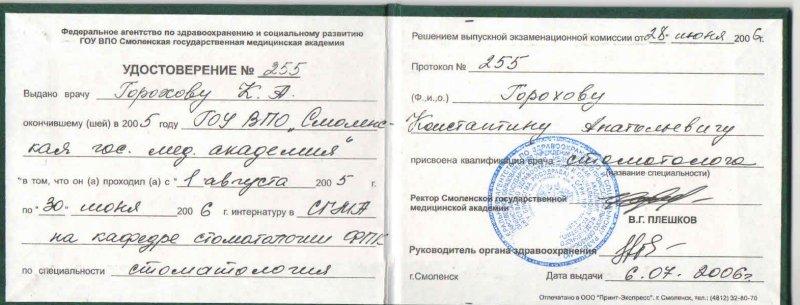 Федеральное агентство по здравоохранению и социальному развитию
ГОУ ВПО Смоленская государственная медицинская академия
УДОСТОВЕРЕНИЕ № 255
Выдано врачу Горохову К. А.
окончившему (шей) в 2005 году ГОУ ВПО „Смоленс-
кая гос. мед. академия"
в том, что он (а) проходил (а) с "1 августа 2005 г.
по "30" июня 2006 г. интернатуру в СГМА
на кафедре стоматологии ФПК
по специальности стоматология
Решением выпускной экзаменационной комиссии от 28 июня 2006г.
Протокол № 255
(Ф.,и.,о.) Горохову
Константину Анатольевичу
присвоена квалификация врача стоматолога
(название специальности)
Ректор Смоленской государственной
медицинской академии
В.Г. ПЛЕШКОВ
Руководитель органа здравоохранения
г.Смоленск Дата выдачи 6.07.2006г
Отпечатано в ООО "Принт-Экспресс", г. Смоленск, тел.: (4812) 32-80-70